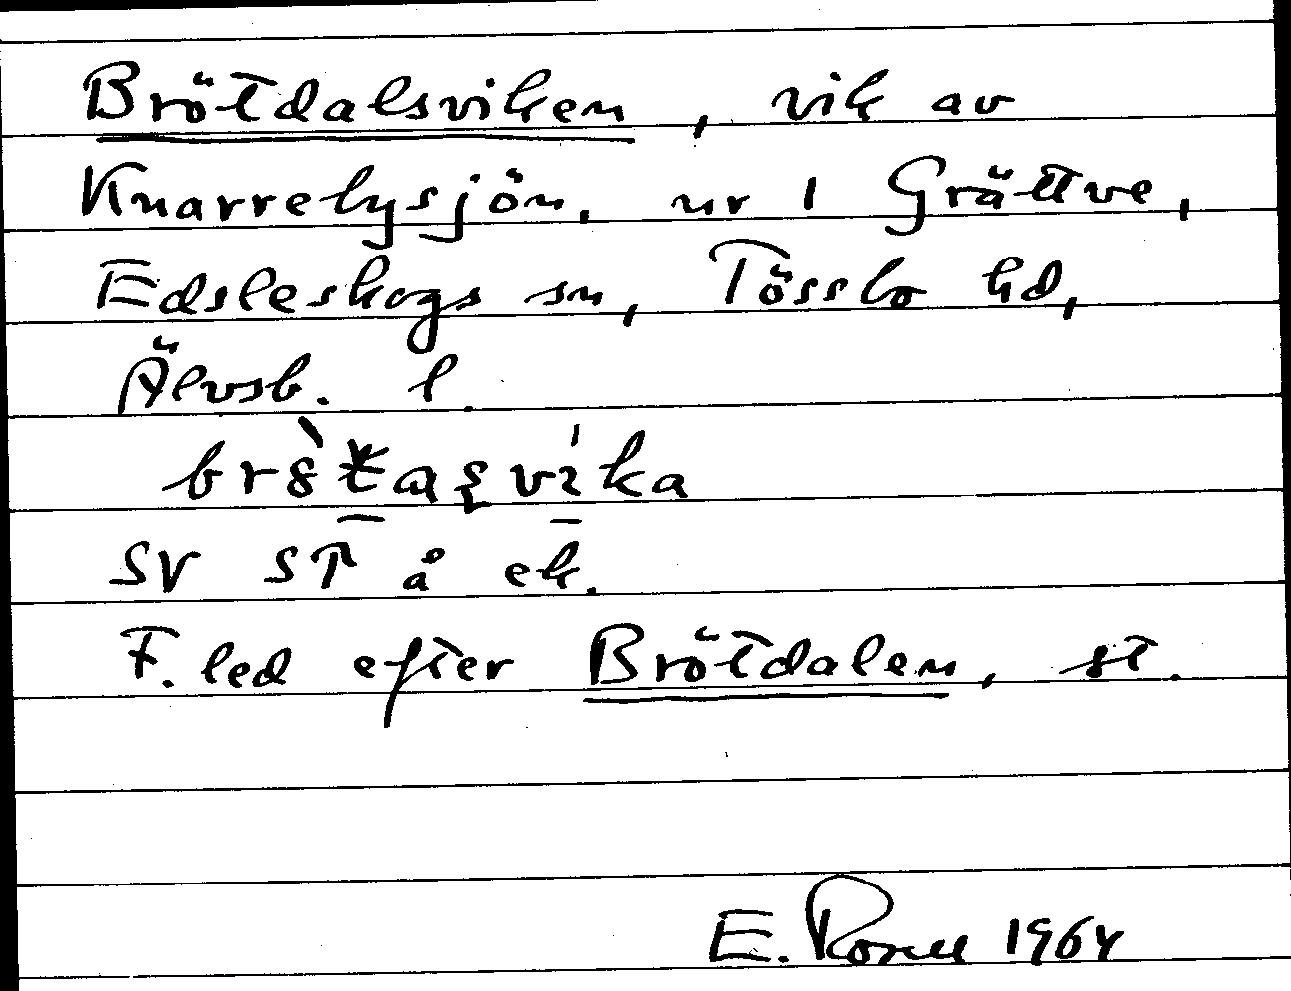 Brötdalsviken, vik av
Knarrebysjön, nr 1 Grättve,
Edsleskogs sn, Tössbo hd,
Älvsb. l.
SV ST å ek.
F. led efter Brötdalen, st.
E. Rosell 1964